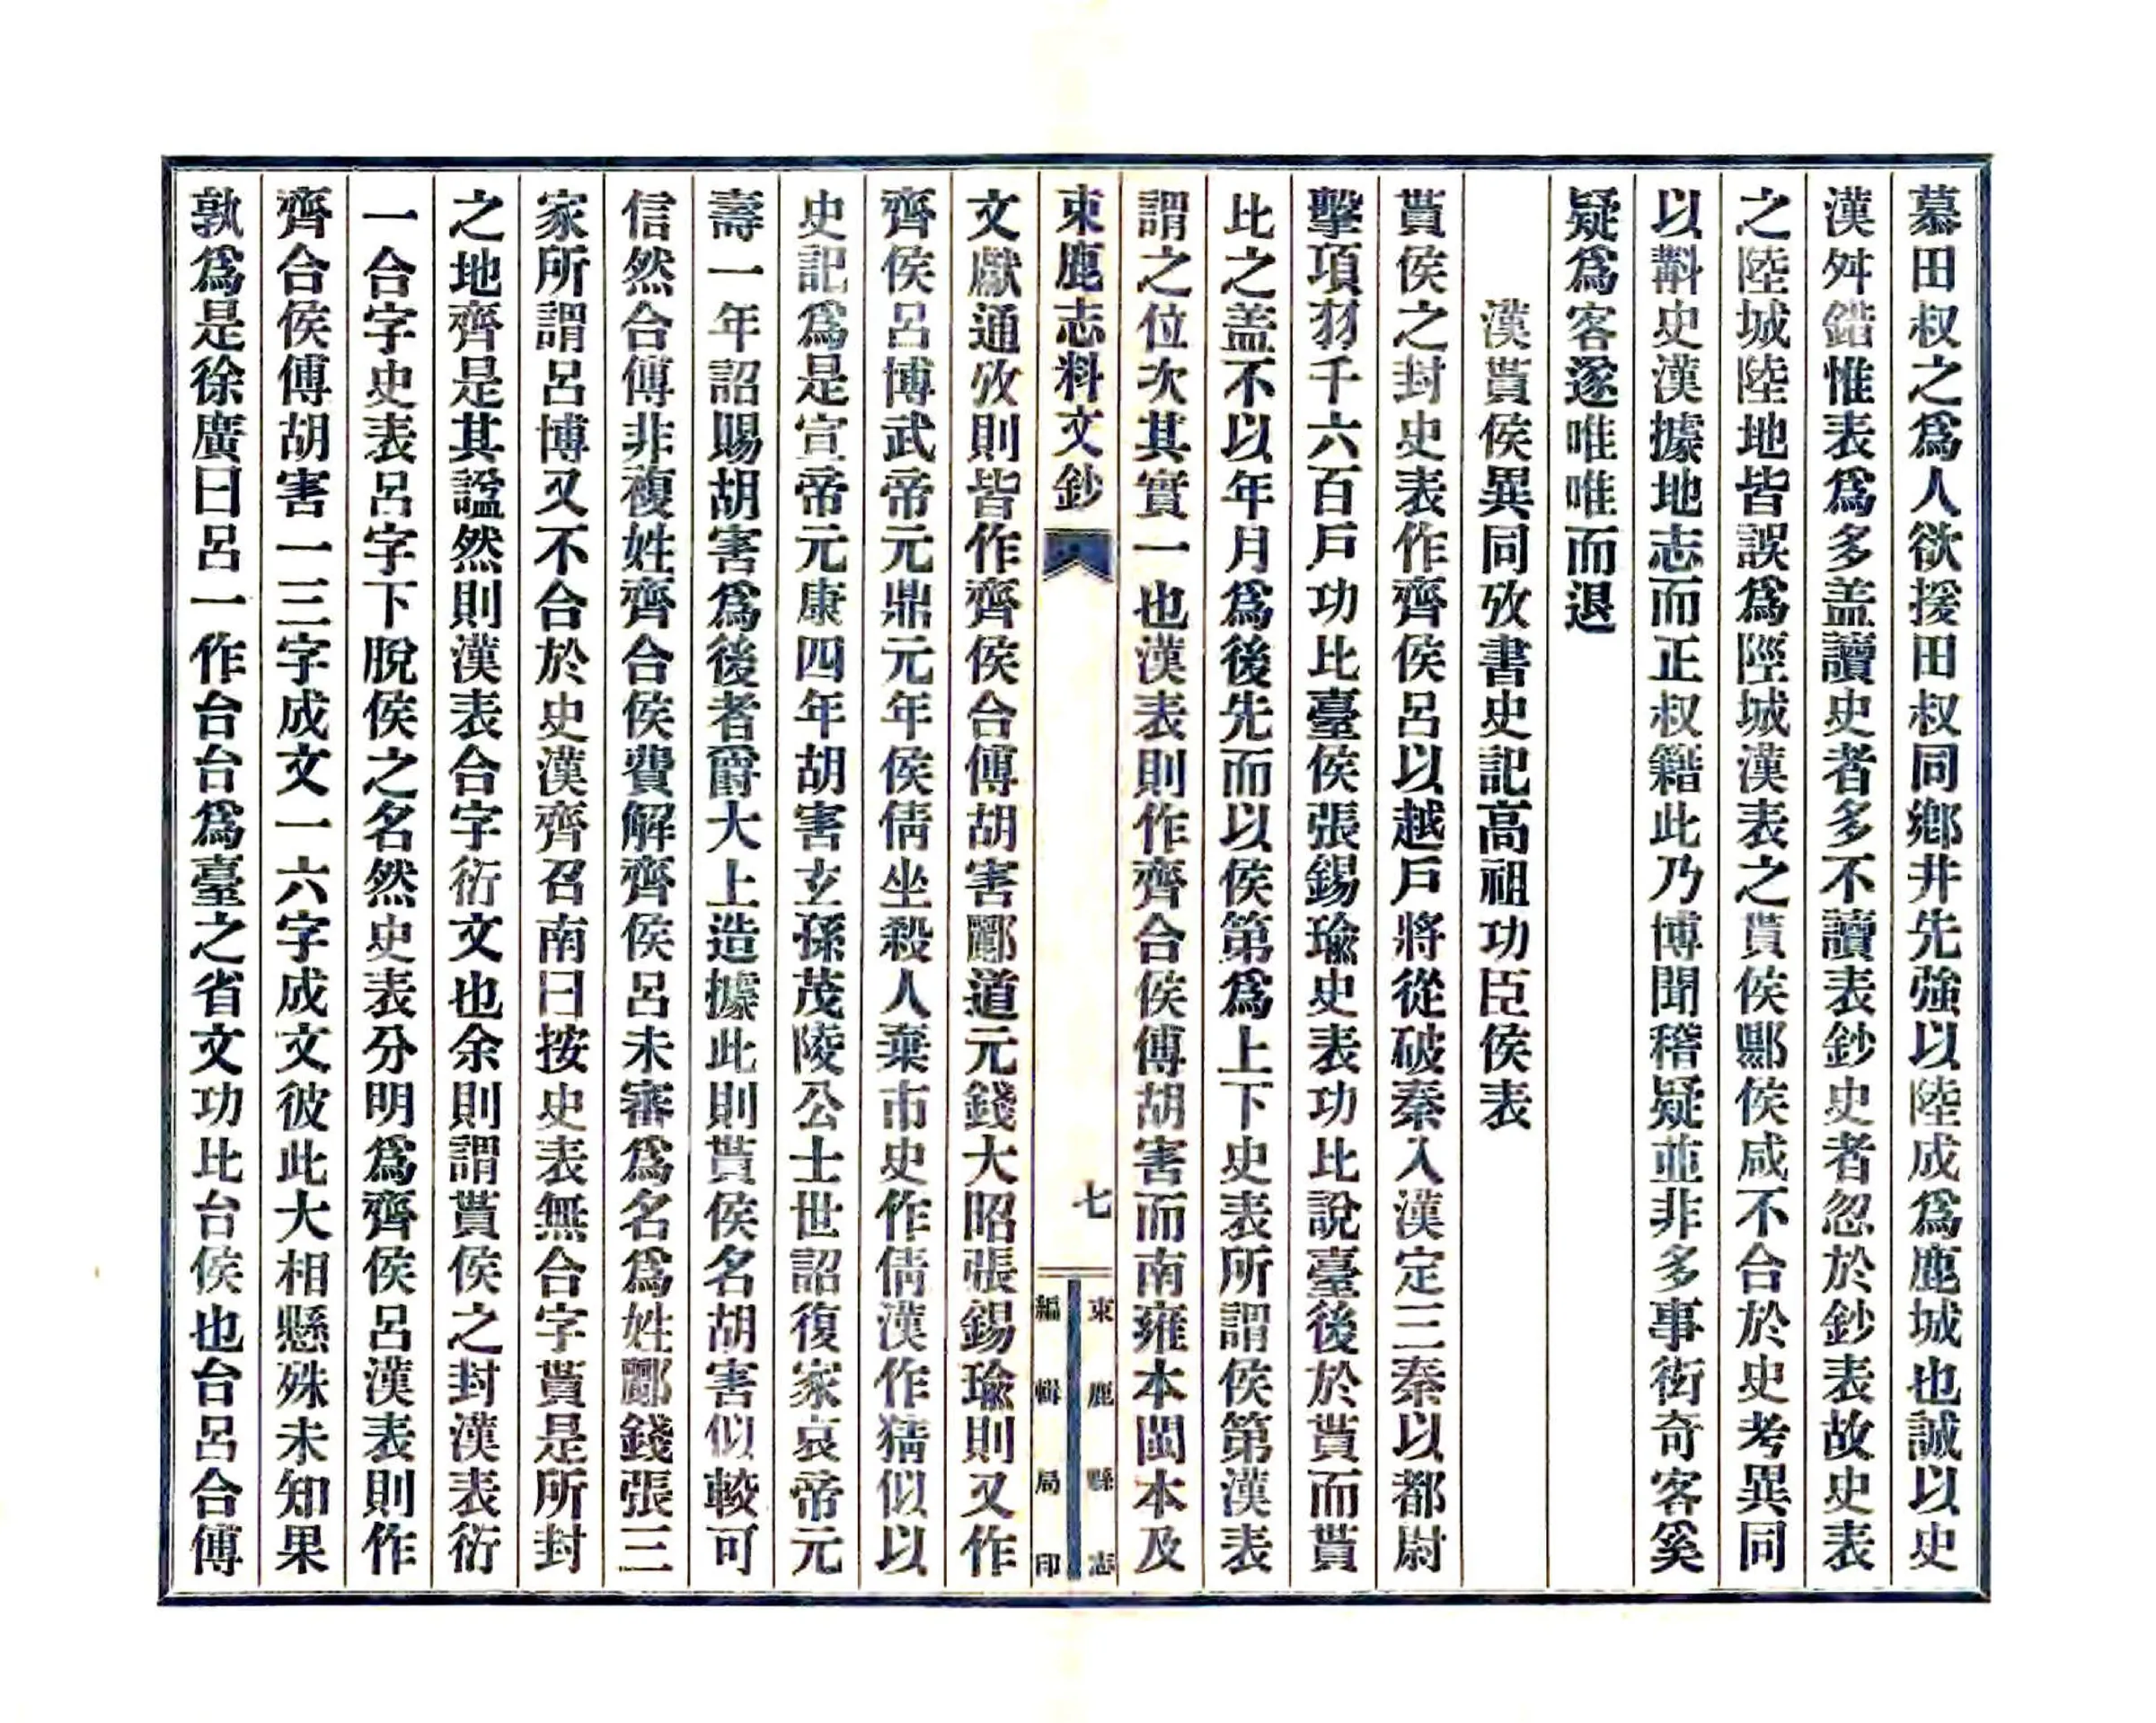 慕田叔之爲人欲援田叔同鄉井先強以陸成爲鹿城也誠以史
漢舛錯惟表爲多盖讀史者多不讀表鈔史者忽於鈔表故史表
之陸城陸地皆誤爲陘城漢表之貰侯鄡侯咸不合於史考異同
以斠史漢據地志而正叔籍此乃博聞稽疑並非多事衒奇客奚
疑爲客遂唯唯而退
漢貰侯異同攷書史記高祖功臣侯表
貰侯之封史表作齊侯呂以越戶將從破秦入漢定三秦以都尉
擊項羽千六百戶功比臺侯張錫瑜史表功比說臺後於貰而貰
比之盖不以年月爲後先而以侯第爲上下史表所謂侯第漢表
謂之位次其實一也漢表則作齊合侯傅胡害而南雍本閩本及
束鹿志料文鈔
七
束鹿縣志
編輯局印
文獻通攷則皆作齊侯合傅胡害酈道元錢大昭張錫瑜則又作
齊侯呂博武帝元鼎元年侯倩坐殺人棄市史作倩漢作猜似以
史記爲是宣帝元康四年胡害玄孫茂陵公士世詔復家哀帝元
壽一年詔賜胡害爲後者爵大上造據此則貰侯名胡害似較可
信然合傅非複姓齊合侯費解齊侯呂未審爲名爲姓酈錢張三
家所謂呂博又不合於史漢齊召南曰按史表無合字貰是所封
之地齊是其諡然則漢表合字衍文也余則謂貰侯之封漢表衍
一合字史表呂字下脫侯之名然史表分明爲齊侯呂漢表則作
齊合侯傅胡害一三字成文一六字成文彼此大相懸殊未知果
孰爲是徐廣曰呂一作台台爲臺之省文功比台侯也台呂合傅